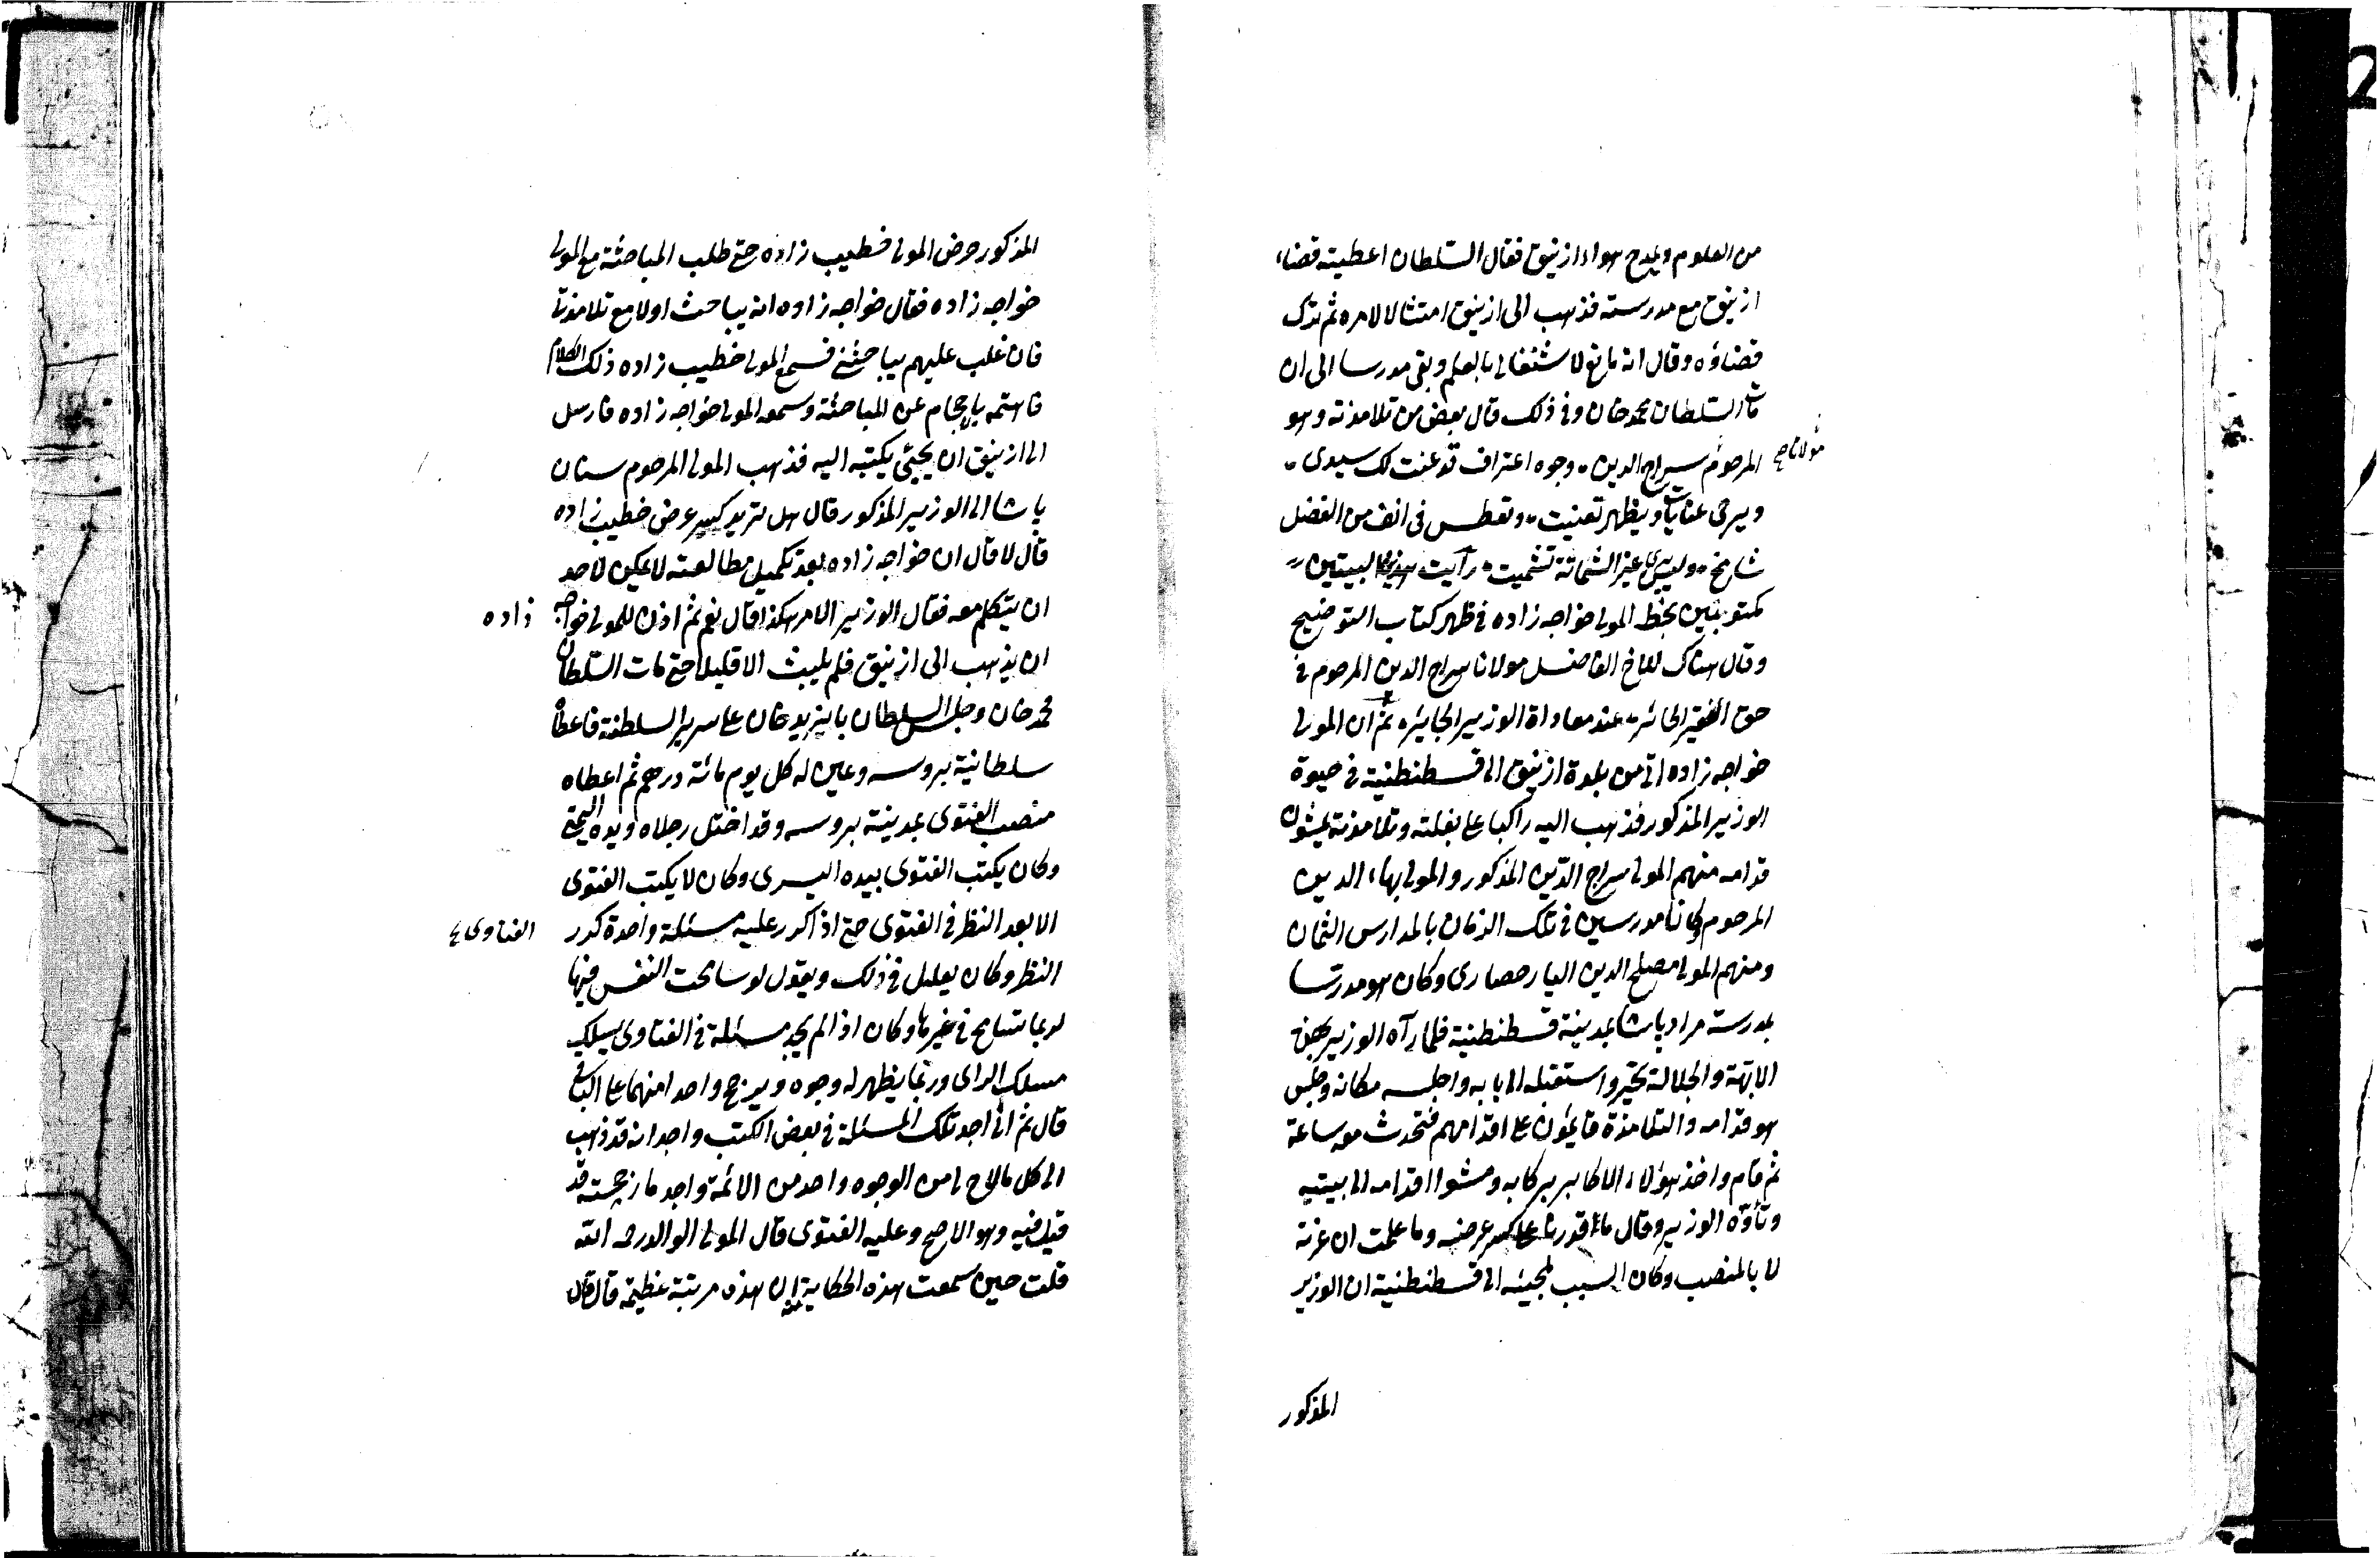 من العلوم ويمدح هواء ازنيق فقال السلطان اعطيته قضاء
ازنيق مع مدرسته فذهب الى ازنيق امتثالا لامره ثم ترك
قضاؤه وقال انه مانع لاشتغالي بالعلم وبقى مدرسا الى ان
مات السلطان محمد خان وفي ذلك قال بعض من تلامذته وهو
مولانا صح
المرحوم سراج الدين وجوه اعتراف قد عنت لك سيدى
ويرحى عنادا ويظهر تعنيت وتعطس فى انف من الفضل
شامخ وليس غير الشماتة تشميت رأيت هذين البيتين
مكتوبتين بخط المولى خواجه زاده في ظهر كتاب التوضيح
وقال هناك للاخ الفاضل مولانا سراج الدين المرحوم في
حق الفقير الحائر عند معاداة الوزير الجاير ثم ان المولى
خواجه زاده اتى من بلدة ازنيق الى قسطنطنية في حيوة
الوزير المذكور فذهب اليه راكبا على بغلته وتلامذته يمشون
قدامه منهم المولى سراج الدين المذكور والمولى بهاء الدين
المرحوم وكانا مدرسين في تلك الزمان بالمدارس الثمان
ومنهم المولى مصلح الدين اليارحصارى وكان هو مدرسا
بمدرسة مراد باشا بمدينة قسطنطنية فلما رآه الوزير بهذه
الابهة والجلالة تحير واستقبله الى بابه واجلسه مكانه وجلس
هو قدامه والتلامذة قايمون على اقدامهم فتحدث معه ساعة
ثم قام واخذ هؤلاء الاكابر بركابه ومشوا قدامه الى بيته
وتأوه الوزير وقال ما قدرنا على كسر عرضه وما علمت ان عزته
لا بالمنصب وكان السبب لمجيئه الى قسطنطنية ان الوزير
المذكور
المذكور حرض المولى خطيب زاده حتى طلب المباحثة مع المولى
خواجه زاده فقال خواجه زاده انه يباحث اولا مع تلامذتى
فان غلب عليهم يباحثنى فسمع المولى خطيب زاده ذلك الكلام
فاستمه بالاحجام عن المباحثة وسمعه المولى خواجه زاده فارسل
الى ازنيق ان يجيئ بكتبه اليه فذهب المولى المرحوم سنان
پاشا الى الوزير المذكور قال هل تريد كسر عرض خطيب زاده
قال لا قال ان خواجه زاده بعد تكميل مطالعته لا يمكن لاحد
ان يتكلم معه فقال الوزير الامر هكذا قال نعم ثم اذن للمولى خواجه
زاده
ان يذهب الى ازنيق فلم يلبث الا قليلا حتى مات السلطان
محمد خان وجلس السلطان بايزيد خان على سرير السلطنة فاعطاه
سلطانية بروسه وعين له كل يوم مائة درهم ثم اعطاه
منصب الفتوى بمدينة بروسه وقد اختل رجلاه ويده اليمنى
وكان يكتب الفتوى بيده اليسرى وكان لا يكتب الفتوى
الا بعد النظر في الفتوى حتى اذا كرر عليه مسئلة واحدة كرر
الفتاوى
النظر وكان يعلل في ذلك ويقول لو سامحت النفس فيها
لربما تتسامح في غيرها وكان اذا لم يجد مسئلة في الفتاوى يسلك
مسلك الراى وربما يظهر له وجوه ويرجح واحدا منهما على الباقى
قال ثم انى اجد تلك المسئلة في بعض الكتب واجد انه قد ذهب
الى كل ما لاح لى من الوجوه واحد من الائمة واجد ما رجحته قد
قيل فيه وهو الاصح وعليه الفتوى قال المولى الوالد رحمه الله
قلت حين سمعت هذه الحكاية ان هذه مرتبة عظيمة قال قال